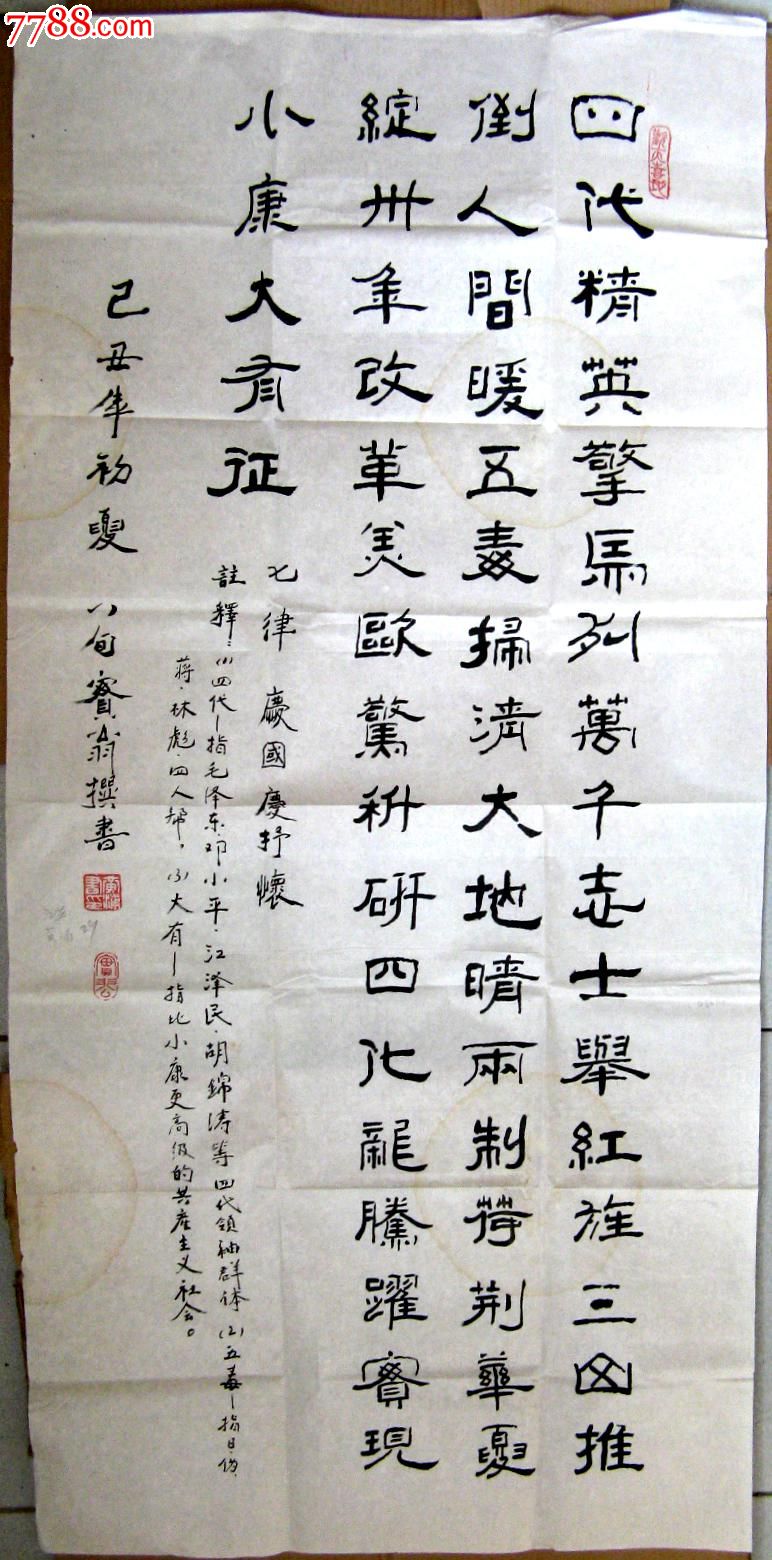 7788.com
四代精英擎馬列萬千志士舉紅旌三山推
倒人間暖五毒掃清大地晴兩制荷荊華夏
綻卅年改革美歐驚科研四化龍騰躍實現
小康大有征
七律 慶國慶抒懷
註釋：(1)四代—指毛泽东.邓小平.江泽民.胡錦涛等四代領袖群体(2)五毒—指日.伪.
蒋.林彪.四人帮。(3)大有—指比小康更高级的共產主义社会。
己丑年初夏 八旬翁撰書